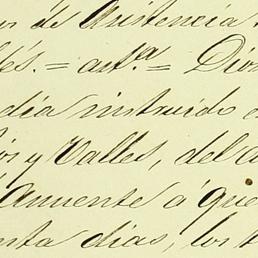 de Asistencia
és. = aut.ª = Dios
dia instruido
os y Valles, del
Anuente á que
nta dias, los